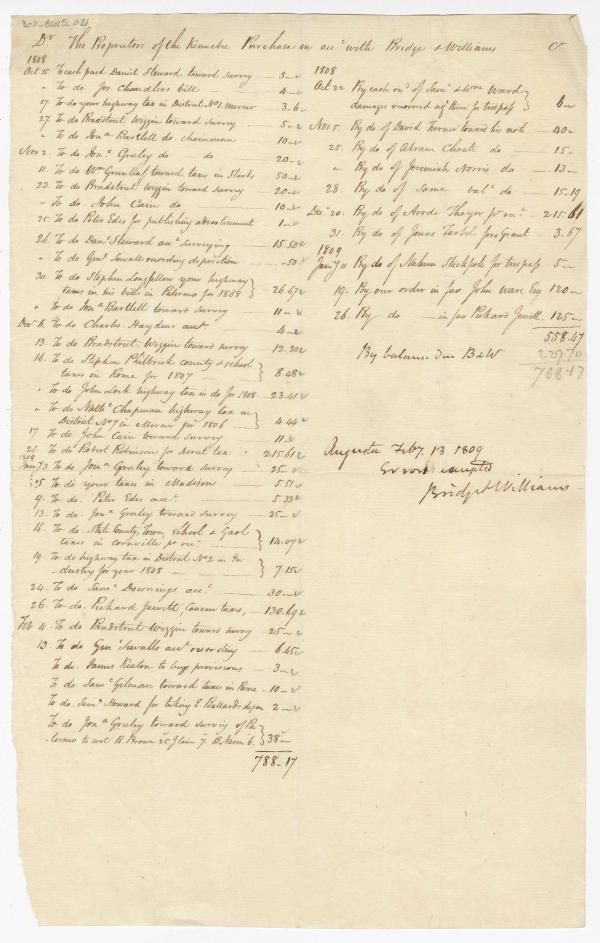 Dr The Proprietors of the Kennebec Purchase in acct with Bridge & Williams Cr
1808
Oct 15 To cash paid Daniel Steward toward survey — 5 —
" To do. Jos. Chandlers bill — 4 —
17. To do your highway tax in District No 1. Mercer — 3.6 —
27. To do Bradstreet Wiggin toward survey — 5 —
" To do Jona Bartlett do chainman — 10 —
Nov 2. To do. Jona Greeley do do — 20 —
11. To do Wm toward taxes in Starks — 50 —
23. To do Bradstreet Wiggin toward survey — 20 —
" To do John Cain do — 10 —
25. To do Peter Edes for publishing advertisement — 1 —
26. To do Danl Steward acct surveying — 15.50
" To do Genl Sewall recording deposition — .50
30. To do Stephen Longfellow your highway
taxes in his bills in Palermo for 1808 } 26.67
" To do Jona Bartlett toward survey — 11 —
Dec 6. To do Charles Haydens acct — 4 —
13. To do Bradstreet Wiggin toward survey — 12.30
16. To do Stephen Philbrick county & school
taxes in Rome for 1807 } 8.48
" To do John Lock highway tax in do for 1808 — 23.41
" To do Nathl Chapman highway tax in
District No 7 in Mercer for 1806 } 4.44
17 To do John Cain toward survey — 11 —
To do Robert Robinson for Direct tax " 215.61
1809
Jany 3. To do Jona Greeley toward survey — 25 —
5. To do your taxes in Madison 5.51
9. To do. Peter Edes acct. 5.33
13. To do. Jona Greeley toward survey — 25 —
16. To do. State County, Town, School & Gaol
taxes in Cornville pr rect } 14.07
19. To do highway tax in District No 2 in In
-dustry for year 1808 } 7.15
24. To do Saml Downings acct — 30 —
26. To do. Pickard Jewett, Canaan taxes, — 130.69
Feb 4. To do Bradstreet Wiggin toward survey — 25 —
13. To do Genl Sewalls acct recording — 6.45
To do. James Keaton to buy provisions — 3 —
To do. Saml Gilman toward taxes in Rome — 10 —
To do. Saml Howard for taking E. Ballards depon 2 —
To do Jona Greeley toward survey of Pa
-lermo to wit B. Brown 25 J Cain 7. 6. } 38 —
788.17
1808
Oct 22 By cash recd of Saml & Wm Ward
damages recovered agt them for trespass } 6 —
Nov 5. By do of David Turner toward his note — 40 —
25. By do of Abram Choate do — 15 —
" By do of Jeremiah Norris do — 13 —
28. By do of same balce do — 15.19
Dec 20. By do of Arode Thayer pr rect — 215.61
31. By do of Jonas Tarbel for Grant — 3.67
1809
Jany 11 By do of Nahum Stackpole for trespass 5 —
19. By our order in fav John Ware Esq 120 —
26. By do — in fav Pickard Jewett. 125 —
558.47
By balance due B&W 229.70
788.17
Augusta Feby. 13 1809
Errors excepted
Bridge & Williams